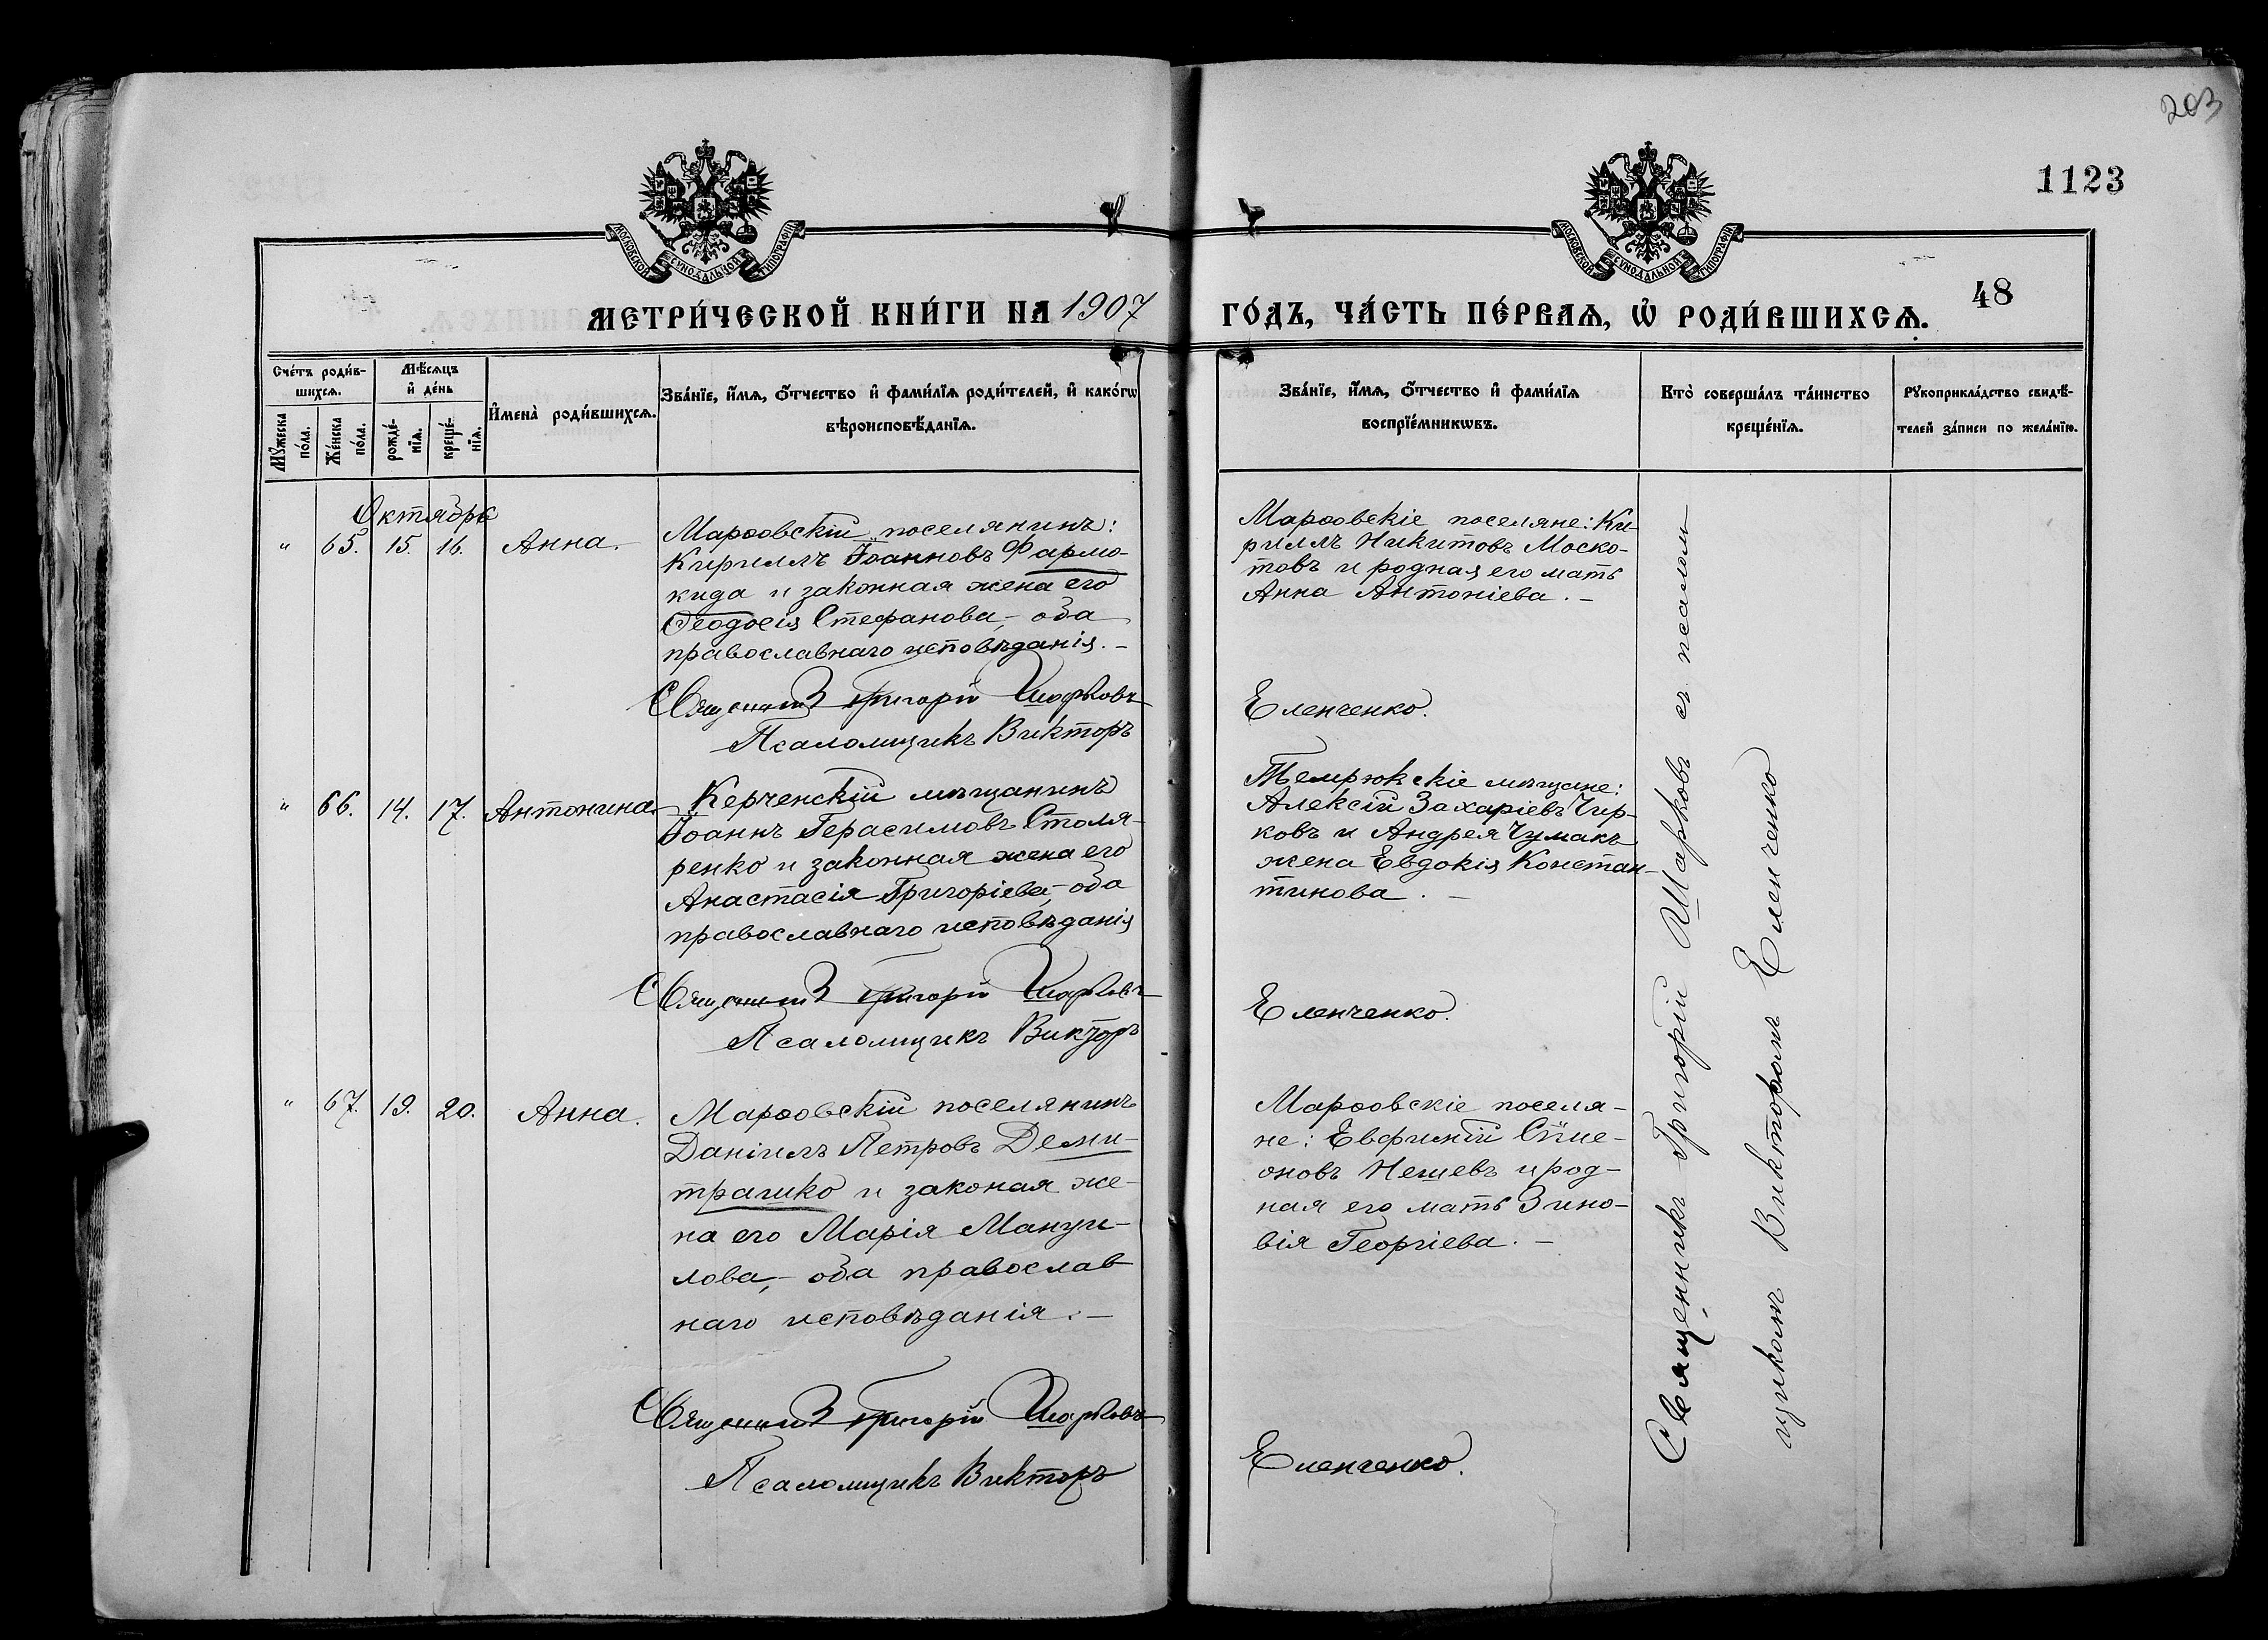 203
1123
МОСКОВСКОЙ СѴНОДАЛЬНОЙ ТИПОГРАФІИ
МОСКОВСКОЙ СѴНОДАЛЬНОЙ ТИПОГРАФІИ
МЕТРИ́ЧЕСКОЙ КНИ́ГИ НА 1907
ГО́ДЪ, ЧА́СТЬ ПЕ́РВАѦ, Ѡ҆ РОДИ́ВШИХСѦ.
48
Сче́тъ роди́в-
шихсѧ.
Мꙋ́жеска
по́ла.
Же́нска
по́ла.
Мѣ́сѧцъ
и҆ де́нь
рожде́-
нїѧ.
креще́-
нїѧ.
И҆мена̀ роди́вшихсѧ.
Зва́нїе, и҆́мѧ, ѻ҆́тчество и҆ фами́лїѧ роди́телей, и҆ како́гѡ
вѣроисповѣ́данїѧ.
Зва́нїе, и҆́мѧ, ѻ҆́тчество и҆ фами́лїѧ
воспрїе́мникѡвъ.
Кто̀ соверша́лъ та́инство
креще́нїѧ.
Рꙋкоприкла́дство свидѣ́-
телей за́писи по жела́нїю.
Октября
" 65. 15. 16. Анна.
Марѳовскій поселянинъ:
Кириллъ Іоанновъ Фармо-
кида и законная жена его
Ѳеодосія Стефанова,- оба
православнаго исповѣданія.-
Священникъ Григорій Шарковъ
Псаломщикъ Викторъ
Марѳовскіе поселяне: Ки-
риллъ Никитовъ Моско-
товъ и родная его мать
Анна Антоніева.-
Еленченко.
" 66. 14. 17. Антонина.
Керченскій мѣщанинъ
Іоаннъ Герасимовъ Столя-
ренко и законная жена его
Анастасія Григоріева,- оба
православнаго исповѣданія
Священникъ Григорій Шарковъ
Псаломщикъ Викторъ
Темрюкскіе мѣщане:
Алексій Захаріевъ Чир-
ковъ и Андрея Чумакъ
жена Евдокія Констан-
тинова.-
Еленченко.
" 67. 19. 20. Анна.
Марѳовскій поселянинъ
Даніилъ Петровъ Деми-
трашко и законая же-
на его Марія Мануи-
лова,- оба православ-
наго исповѣданія.-
Священникъ Григорій Шарковъ
Псаломщикъ Викторъ
Марѳовскіе поселя-
не: Евфимій Сѵме-
оновъ Нешевъ и род-
ная его мать Зино-
вія Георгіева.-
Еленченко.
Священникъ Григорій Шарковъ съ псалом-
щикомъ Викторомъ Еленченко